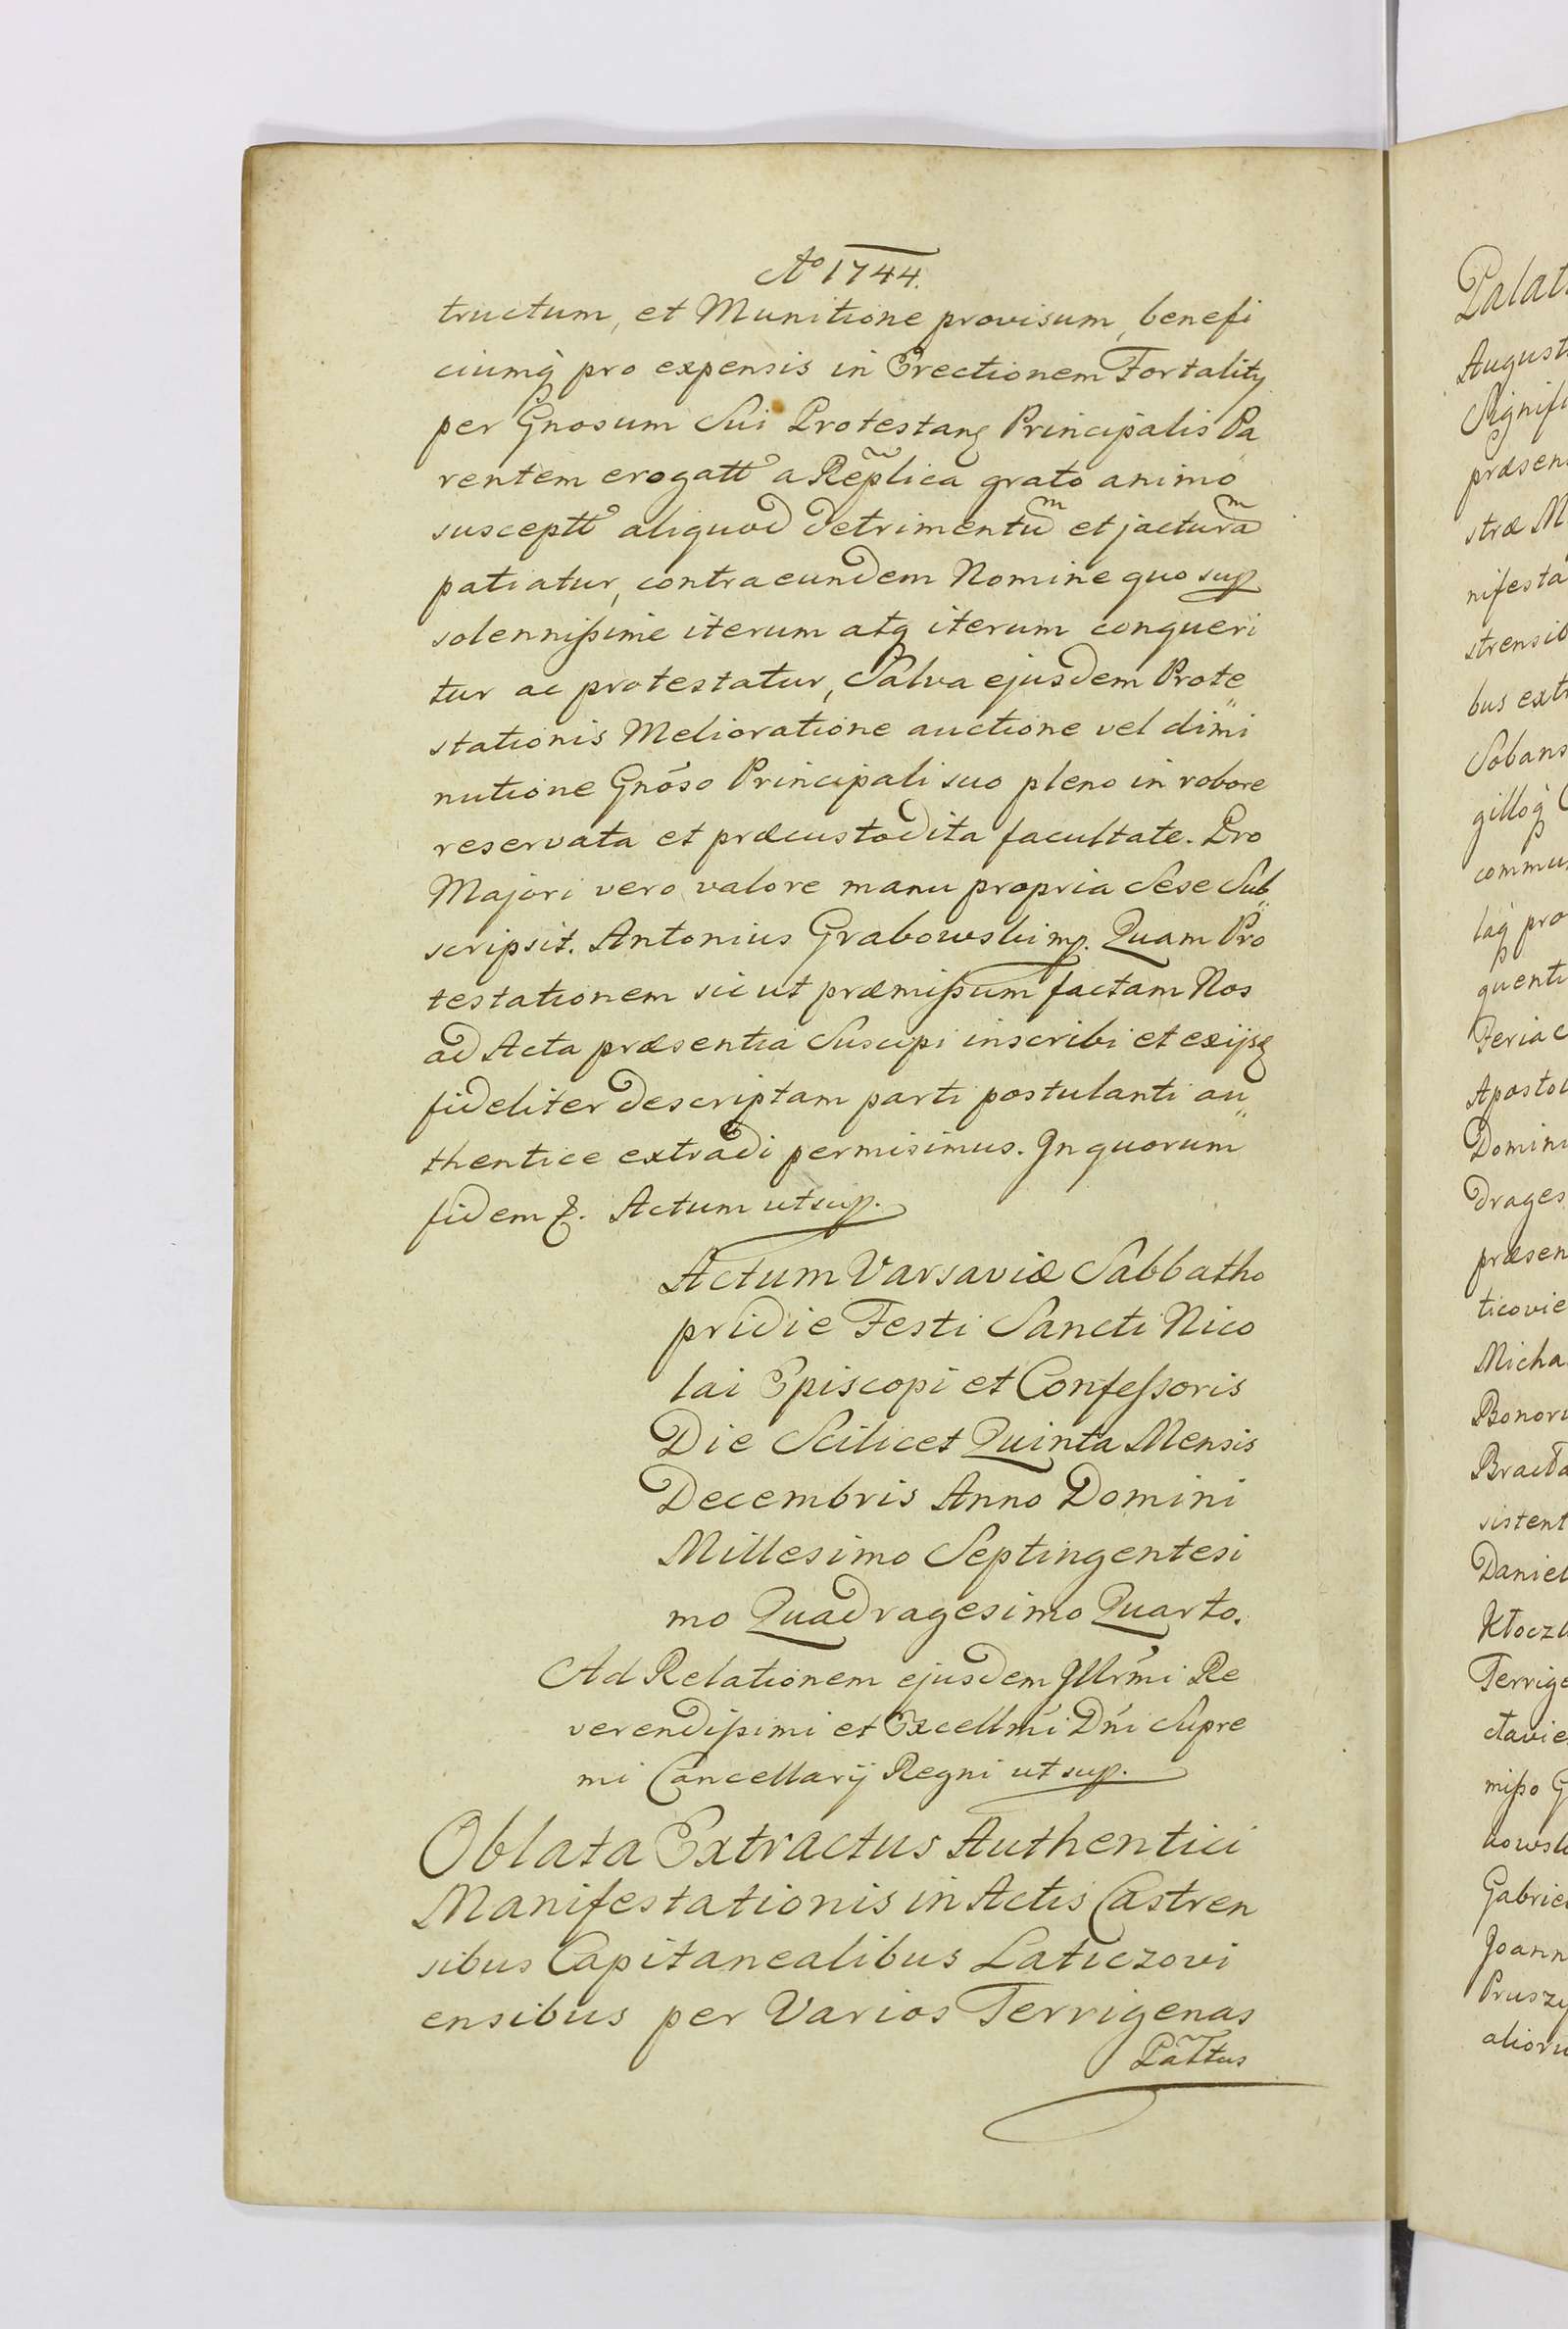 Ao 1744.
tructum, et Munitione provisum, benefi
ciumq̀ pro expensis in Erectionem Fortality
per Gnosum Sui Protestans Principalis Pa
rentem erogatt a Rẽplica grato animo
susceptt aliquod detrimentuͫ et jacturaͫ
patiatur, contra eundem Nomine quo sup
solennißime iterum atq iterum conqueri
tur ac protestatur, Salva ejusdem Prote„
stationis Melioratione auctione vel dimi
nutione Gnóso Principali suo pleno in robore
reservata et præcustodita facultate. Pro
Majori vero valore manu propria Sese Sub„
scripsit. Antonius Grabowski mp. Quam Pro
testationem sic ut præmißum factam Nos
ad Acta præsentia Suscipi inscribi et exijsq
fideliter descriptam parti postulanti au„
thentice extradi permisimus. In quorum
fidem &. Actum ut sup.
Actum Varsaviæ Sabbatho
pridie Festi Sancti Nico
lai Episcopi et Confeßoris
Die Scilicet Quinta Mensis
Decembris Anno Domini
Millesimo Septingentesi
mo Quadragesimo Quarto.
Ad Relationem ejusdem Illrḿi Re
verendißimi et Excellḿi Dńi Supre
mi Cancellarij Regni ut sup.
Oblata Extractus Authentici
Manifestationis in Actis Castren
sibus Capitanealibus Laticzovi
ensibus per Varios Terrigenas
Pattus
Palat
August
Signifi
præsen
stræ M
nifesta
strensib
bus ext
Sobans
gilloq̀
commu
laq̀ pro
quenti
Feria
Aposto
Domin
drages
præsen
ticovie
Micha
Bonor
Bract
sistent
Daniel
Kłocz
Terrige
ctavie
mißo G
kowsk
Gabrie
Joann
Prusz
alioru